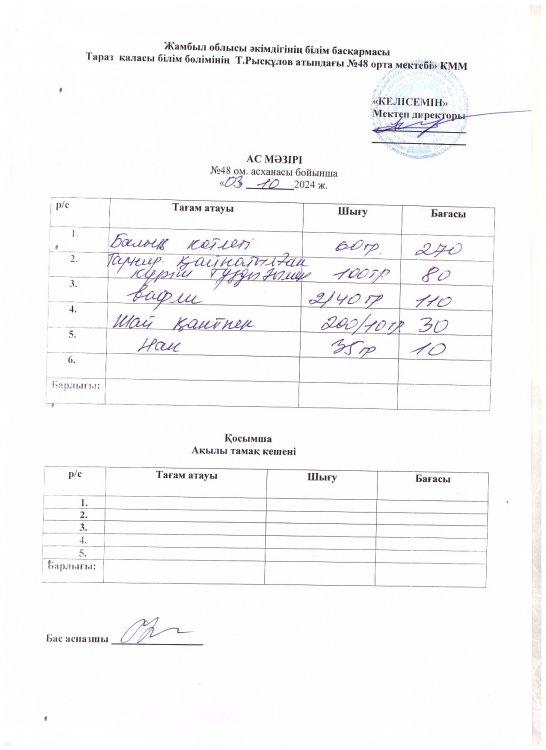 Жамбыл облысы әкімдігінің білім басқармасы
Тараз қаласы білім бөлімінің Т.Рысқұлов атындағы №48 орта мектебі» КММ
«КЕЛІСЕМІН»
Мектеп директоры
АС МӘЗІРІ
№48 ом. асханасы бойынша
«03 10 2024 ж.
р/с Тағам атауы Шығу Бағасы
1. Балық котлеті 60гр. 270
2. Гарнир. қайнатылған
күріш тұздығымен 100гр 80
3. вафли 2/40гр 110
4. Шай қантпен 200/10гр 30
5. Нан 35гр 10
6.
Барлығы:
Қосымша
Ақылы тамақ кешені
р/с Тағам атауы Шығу Бағасы
1.
2.
3.
4.
5.
Барлығы:
Бас аспазшы